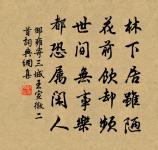 林下居雖陋
花前飲却頻
世間無事樂
都恐属閑人
邵雍寄三城王宣徽二
首詞典網書